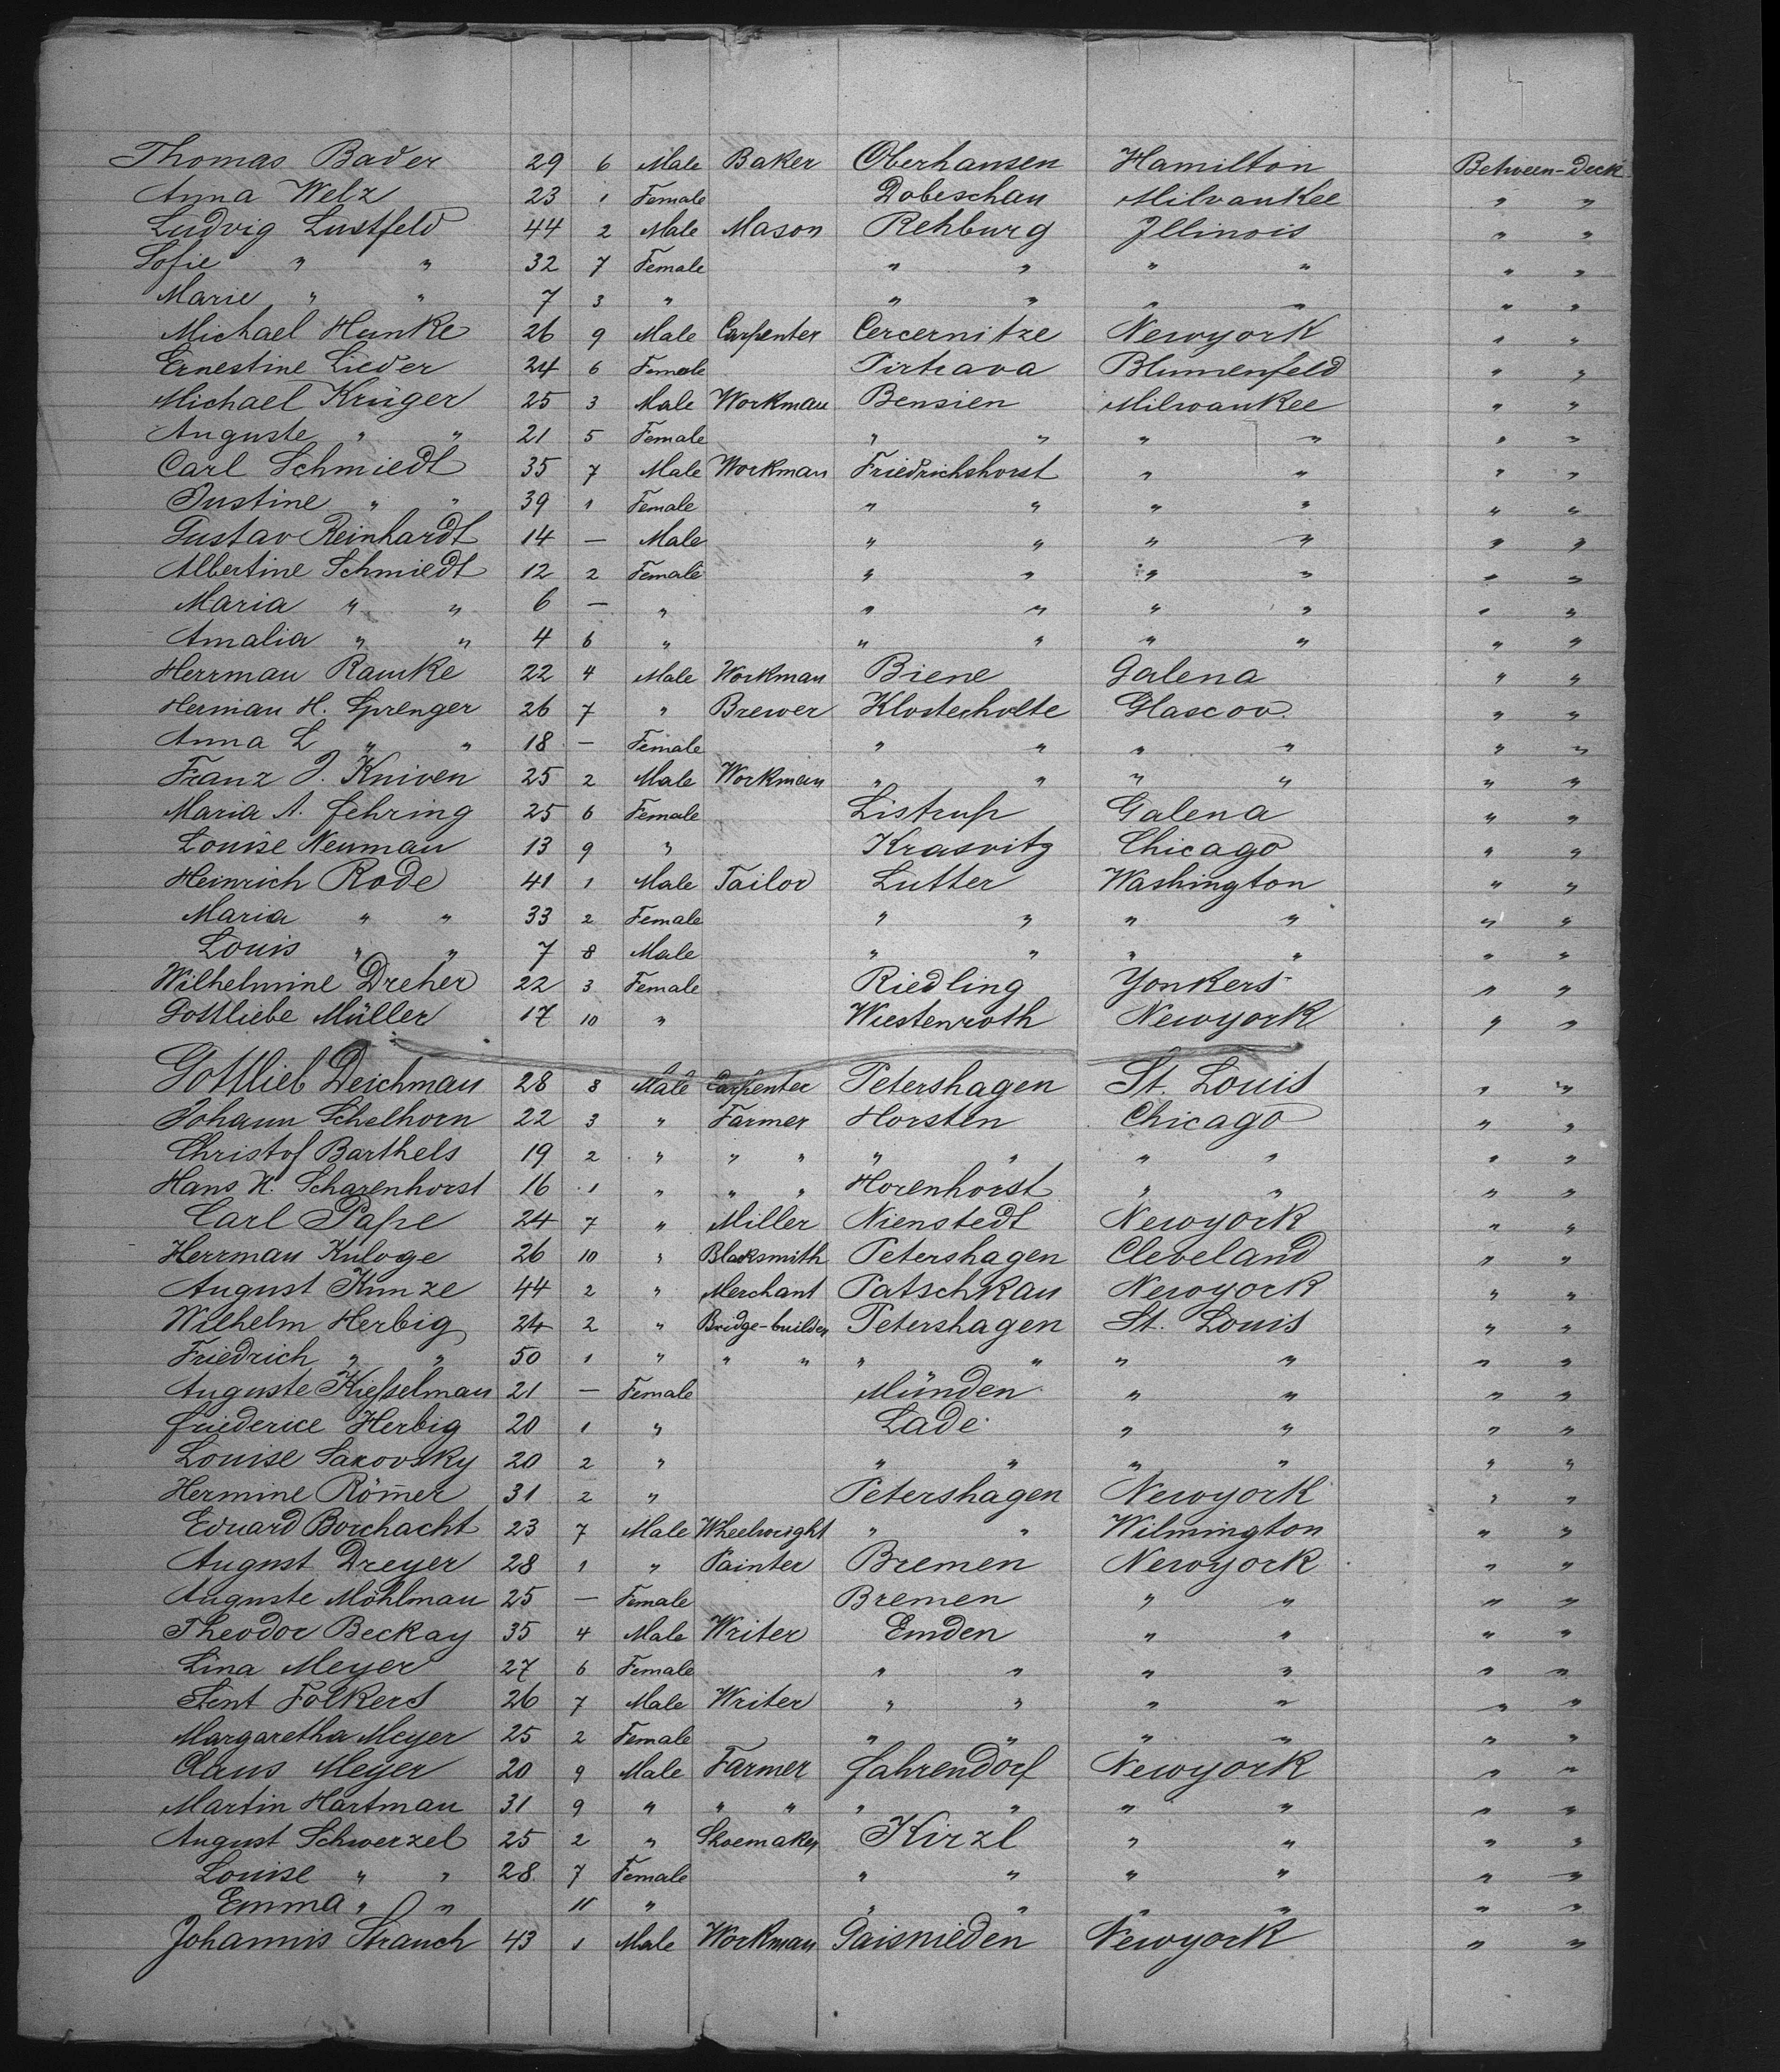 Thomas Bader 29 6 Male Baker Oberhausen Hamilton Between-Deck
Anna Welz 23 1 Female Dobeschau Milvaukee " "
Ludvig Lustfeld 44 2 Male Mason Rehburg Illinois " "
Sofie " " 32 7 Female " " " " " "
Marie " " 7 3 " " " " " " "
Michael Hanke 26 9 Male Carpenter Cercernitze Newyork " "
Ernestine Lieder 24 6 Female Pirtrava Blumenfeld " "
Michael Krüger 25 3 Male Workman Bensien Milwaukee " "
Auguste " " 21 5 Female " " " " " "
Carl Schmiedt 35 7 Male Workman Friedrichshorst " " " "
Justine " " 39 1 Female " " " " " "
Gustav Reinhardt 14 — Male " " " " " "
Albertine Schmiedt 12 2 Female " " " " " "
Maria " " 6 — " " " " " " "
Amalia " " 4 6 " " " " " " "
Herrman Ramke 22 4 Male Workman Biene Galena " "
Herman H. Sprenger 26 7 " Brewer Klosterholte Glascov. " "
Anna L " " 18 — Female " " " " " "
Franz J. Kniven 25 2 Male Workman " " " " " "
Maria A. Fehring 25 6 Female Listrup Galena " "
Louise Neuman 13 9 " Krasvitz Chicago " "
Heinrich Rode 41 1 Male Tailor Lutter Washington " "
Maria " " 33 2 Female " " " " " "
Louis " " 7 8 Male " " " " " "
Wilhelmine Dreher 22 3 Female Riedling Yonkers " "
Gottliebe Müller 17 10 " Wiestenroth Newyork " "
Gottlieb Deichman 28 8 Male Carpenter Petershagen St. Louis " "
Johann Schelhorn 22 3 " Farmer Horsten Chicago " "
Christof Barthels 19 2 " " " " " " " " "
Hans H. Scharenhorst 16 1 " " " Horenhorst " " " "
Carl Pape 24 7 " Miller Nienstedt Newyork " "
Herrman Kuloge 26 10 " Blacksmith Petershagen Cleveland " "
August Kunze 44 2 " Merchant Patschkau Newyork " "
Wilhelm Herbig 24 2 " Bridge-builder Petershagen St. Louis " "
Friedrich " " 50 1 " " " " " " " " "
Auguste Kiesselman 21 — Female Münden " " " "
Friederice Herbig 20 1 " Lade " " " "
Louise Sakovsky 20 2 " " " " " " "
Hermine Römer 31 2 " Petershagen Newyork " "
Eduard Borchacht 23 7 Male Wheelwright " " Wilmington " "
August Dreyer 28 1 " Painter Bremen Newyork " "
Auguste Möhlman 25 — Female Bremen " " " "
Theodor Beckay 35 4 Male Writer Emden " " " "
Lina Meyer 27 6 Female " " " " " "
Folkerts 26 7 Male Writer " " " " " "
Margaretha Meyer 25 2 Female " " " " " "
Claus Meyer 20 9 Male Farmer Fahrendorf Newyork " "
Martin Hartman 31 9 " " " " " " " " "
August Schwerzel 25 2 " Shoemaker Kirzl " " " "
Louise " " 28 7 Female " " " " " "
Emma " " 11 " " " " " " "
Johannis Strauch 43 1 Male Workman Gaisnieden Newyork " "